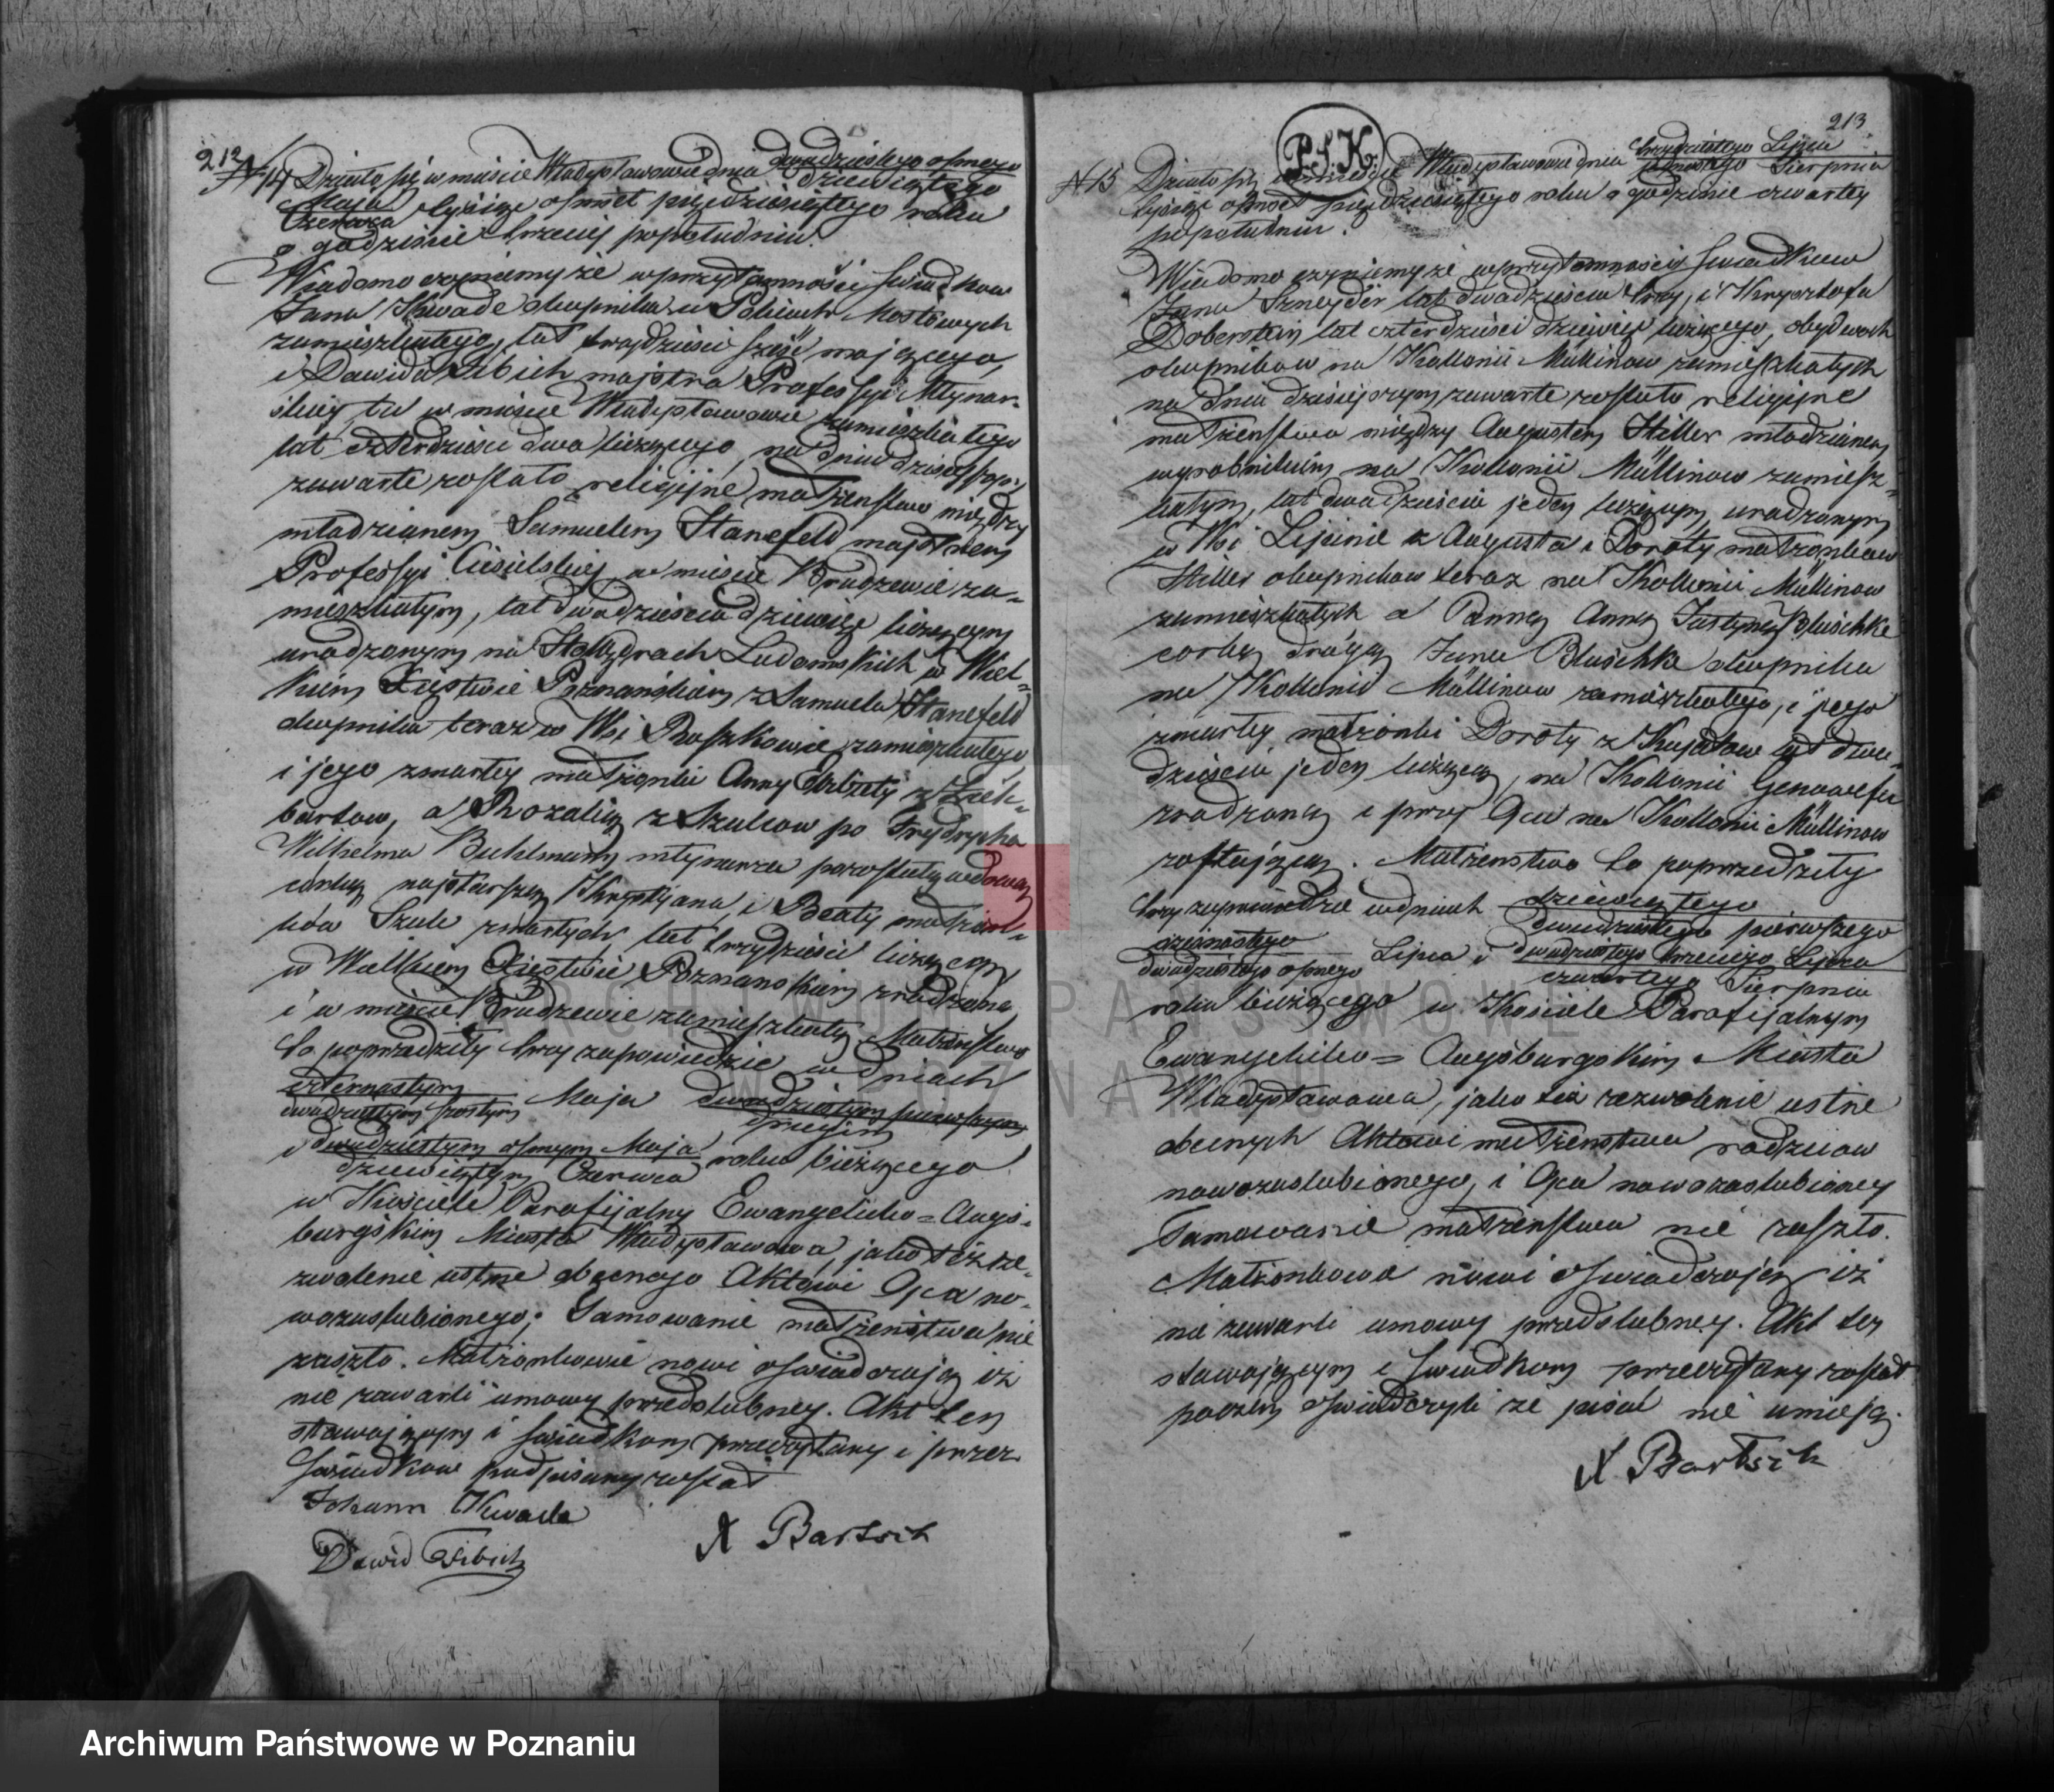 212
N 14 Działo się w mieście Władysławowie dnia dwudziestego osmego
dziewiątego
Maja
Czerwca tysiąc osmset pięćdziesiątego roku
o godzinie trzeciej popołudniu.
Wiadomo czyniemy że w przytomności świadków
Jana Kwade okupnika w Policach Mostowych
zamieszkałego, lat trzydzieści sześć mającego,
i Dawida Fibich majstra Professyi Młynar-
skiej tu w mieście Władysławowie zamieszkałego
lat czterdzieści dwa liczącego, na dniu dzisiejszym
zawarte zostało religijne małżeństwo między
młodzianem Samuelem Stanefeld majstrem
Professyi Ciesielskiej w mieście Brudzewie za-
mieszkałym, lat dwadzieścia dziewięć liczącym
urodzonym na Holędrach Ludomskich w Wiel-
kim Xięstwie Poznańskim z Samuela Stanefeld
okupnika teraz w Wsi Ruszkowie zamieszkałego
i jego zmarłey małżonki Anny Elżbiety z
bartow, a Rozalią z Szulców po Frydrychu
Wilhelmu Buhlmann młynarzu pozostałą wdową
córką najstarszą Krystyjana i Beaty małżon-
ków Szulc zmarłych lat trzydzieści liczącą
w Wielkiem Xięstwie Poznanskim zrodzoną
i w mieście Brudzewie zamieszkałą. Małżeństwo
to poprzedziły trzy zapowiedzie w dniach
czternastym
dwudziestym szostym Maja dwudziestym pierwszym
drugim
i dwudziestym osmym Maja roku bieżącego
dziewiątym Czerwca
w Kościele Parafijalny Ewangelicko=Augs-
burgskim Miasta Władysławowa, jako też ze-
zwolenie ustne obecnego Aktowi Ojca no-
wozaslubionego; Tamowanie małżeństwa nie
zaszło. Małżonkowie nowi oświadczają iż
nie zawarli umowy przedslubney. Akt ten
stawającym i świadkom przeczytany i przez
Świadków podpisany został
Johann Kwade
Dawid Fibich
A Bartsch
213
P.S.K.
N 15 Działo się w mieście Władysławowie dnia trzydziestego Lipca
Sierpnia
tysiąc osmset pięćdziesiątego roku o godzinie czwartey
popołudniu.
Wiadomo czyniemy że w przytomności świadków
Jana Sznejder lat dwadzieścia trzy, i Krysztofa
Doberstein lat czterdzieści dziewięć liczącego, obydwoch
okupników na Kollonii Müllinow zamieszkałych
na dniu dzisiejszym zawarte zostało religijne
małżeństwo między Augustem Hiller młodzianem
wyrobnikiem na Kollonii Müllinow zamiesz-
kałym, lat dwadzieścia jeden liczącym, urodzonym
w Wsi Lipinie z Augusta i Doroty małżonków
Hiller okupników teraz na Kollonii Müllinow
zamieszkałych a Panną Anną Justyną Bluschke
corką drugą Jana Bluschke okupnika
na Kollonii Müllinow zamieszkałego, i jego
zmarłey małżonki Doroty z Kujatow lat dwa-
dzieścia jeden liczącą, na Kollonii Genowefa
zrodzoną i przy Ojcu na Kollonii Müllinow
zostającą. Małżenstwo to poprzedziły
trzy zapowiedzie w dniach dziewiątego
dwudziestego pierwszego
szesnastego
dwudziestego osmego Lipca i dwudziestego trzeciego Lipca
czwartego Sierpnia
roku bieżącego w Kościele Parafijalnym
Ewangelicko=Augsburgskim Miasta
Władysławowa, jako też zezwolenie ustne
obecnych Aktowi małżenstwa rodziców
nowozaslubionego, i Ojca nowozaslubioney
Tamowanie małżeństwa nie zaszło.
Małżonkowie nowi oświadczają iż
nie zawarli umowy przedslubney. Akt ten
stawającym i świadkom przeczytany został
poczem oświadczyli że pisać nie umieją.
A Bartsch
ARCHIWUM PAŃSTWOWE
W POZNANIU
Archiwum Państwowe w Poznaniu